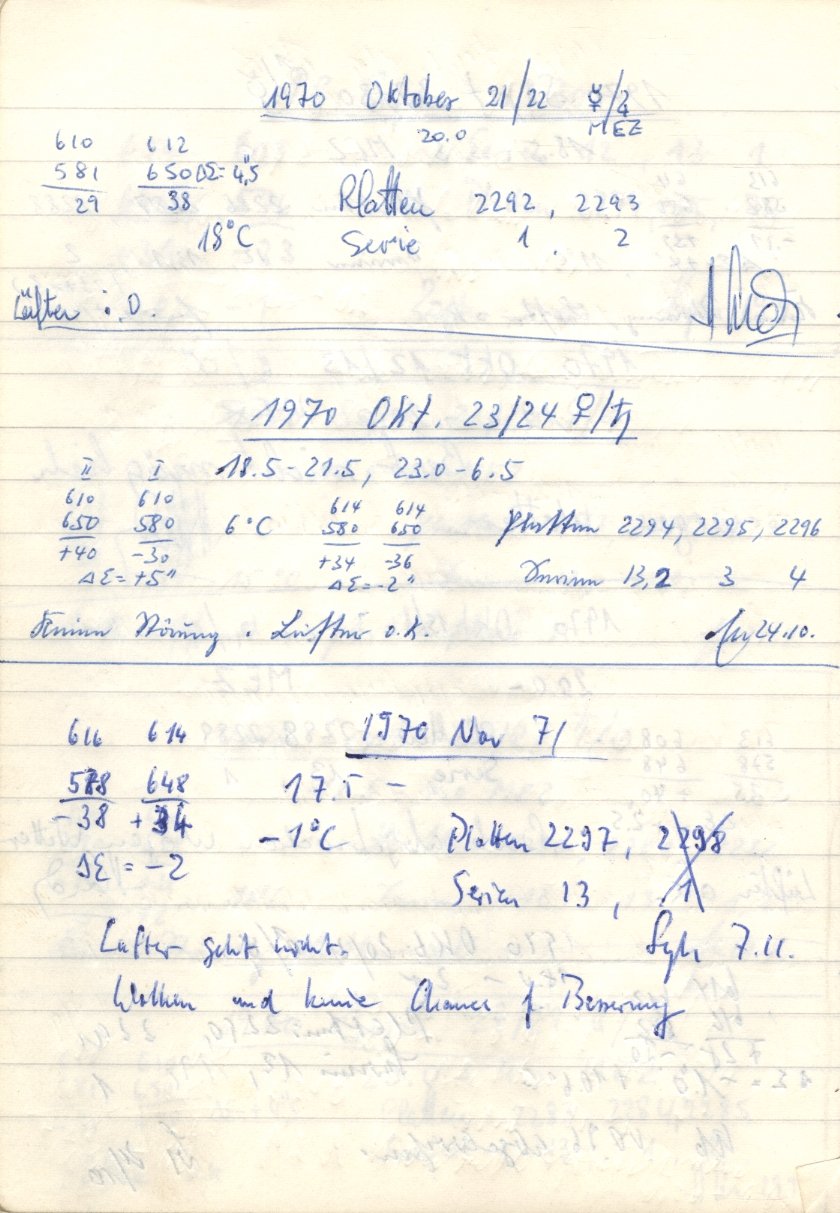 1970 Oktober 21/22 ☿/♃
20.0 MEZ
610 612
581 650 ΔΣ = 4,5"
29 38
Platten 2292, 2293
18°C Serie 1. 2
Lüfter i.O.
1970 Okt. 23/24 ♀/♄
II I 18.5-21.5, 23.0-6.5
610 610 614 614
650 580 6°C 580 650 Platten 2294, 2295, 2296
+40 -30 +34 -36
ΔΣ = +5" ΔΣ = -2" Serien 13,2 3 4
Keine Störung. Lüfter o.K. 24.10.
1970 Nov 7/
616 614
578 648 17.5 -
-38 +34 -1°C Platten 2297, 2298
ΔΣ = -2 Serien 13, 1
Lüfter geht nicht. 7.11.
Wolken und keine Chance f. Besserung